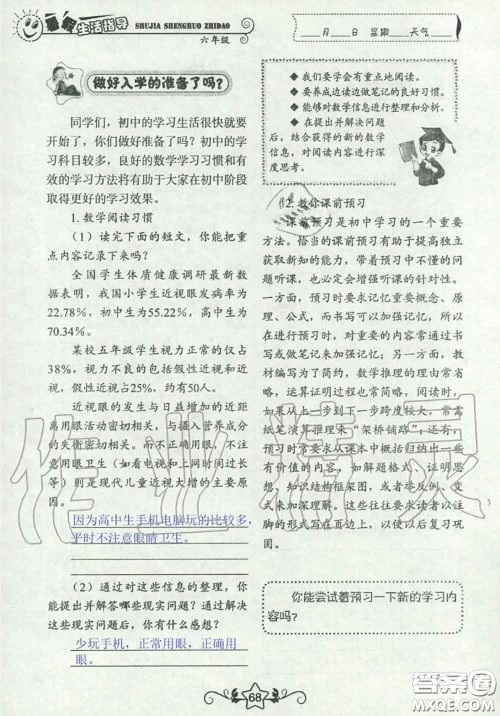 暑假生活指导
SHUJIA SHENGHUO ZHIDAO
六年级
月 日 星期 天气
做好入学的准备了吗？
同学们，初中的学习生活很快就要
开始了，你们做好准备了吗？初中的学
习科目较多，良好的数学学习习惯和有
效的学习方法将有助于大家在初中阶段
取得更好的学习效果。
1. 数学阅读习惯
（1）读完下面的短文，你能把重
点内容记录下来吗？
全国学生体质健康调研最新数
据表明，我国小学生近视眼发病率为
22.78%，初中生为55.22%，高中生为
70.34%。
某校五年级学生视力正常的仅占
38%，视力不良的包括假性近视和近
视，假性近视占25%，约有50人。
近视眼的发生与日益增加的近距
离用眼活动密切相关，与摄入营养成分
的失衡密切相关。而不正确用眼、不注
意用眼卫生（如看电视和上网时间过长
等）则是现代儿童近视大增的主要原
因。
因为高中生手机电脑玩的比较多，
平时不注意眼睛卫生。
（2）通过对这些信息的整理，你
能提出并解答哪些现实问题？通过解决
这些现实问题后，你有什么感想？
少玩手机，正常用眼，正确用
眼。
◆ 我们要学会有重点地阅读。
◆ 要养成边读边做笔记的良好习惯。
◆ 能够对数学信息进行整理和分析。
◆ 在提出并解决问题后，
结合获得的新的数学
信息，对阅读内容进行
深度思考。
2. 教你课前预习
课前预习是初中学习的一个重要
方法。恰当的课前预习有助于提高独立
获取新知的能力，带着预习中不懂的问
题听课，也必定会增强听课的针对性。
一方面，预习时要求记忆重要概念、原
理、公式，而书写可以加强记忆，所以
在进行预习时，对重要的内容常通过书
写或做笔记来加强记忆；另一方面，教
材编写为了简约，数学推理的理由常省
略，运算证明过程也常简略，阅读时，
如果从上一步到下一步跨度较大，常需
纸笔演算推理来“架桥铺路”；还有，
预习时常要求从课本中概括归纳出一些
有价值的内容，如解题格式、证明思
想、知识结构框架图，或者举反例、变
式来加深理解。这些往往要求读者以注
脚的形式写在页边上，以便以后复习巩
固。
你能尝试着预习一下新的学习内
容吗？
68
作业精灵
答案圈
MXQE.COM